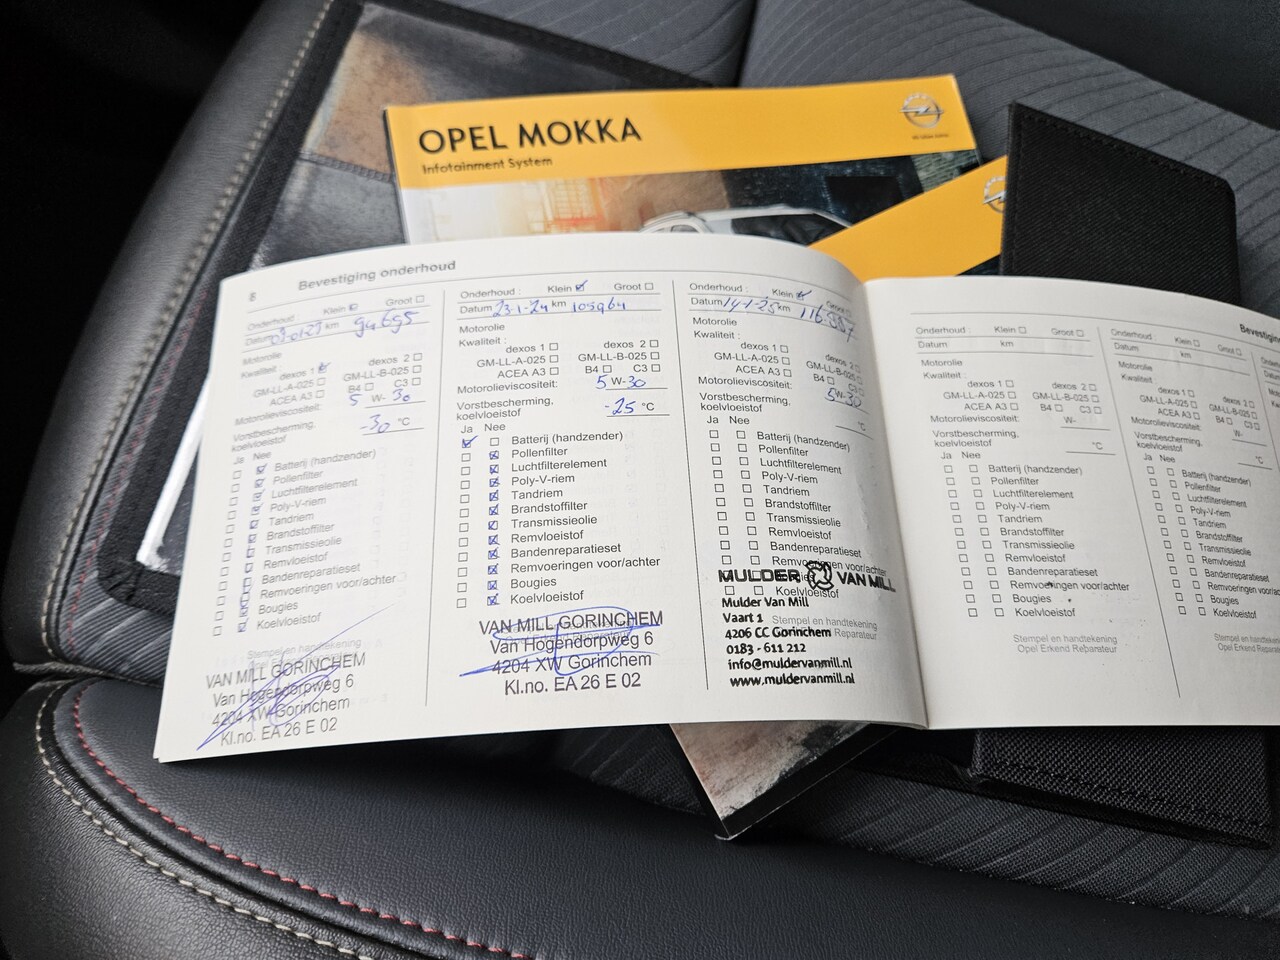 OPEL MOKKA
Infotainment System
8 Bevestiging onderhoud
Onderhoud Klein Groot
Datum km 94695
Motorolie
Kwaliteit: dexos 1 dexos 2
GM-LL-A-025 GM-LL-B-025
ACEA A3 B4 C3
Motorolieviscositeit: 5 W- 30
Vorstbescherming,
koelvloeistof -30 °C
Ja Nee
Batterij (handzender)
Pollenfilter
Luchtfilterelement
Poly-V-riem
Tandriem
Brandstoffilter
Transmissieolie
Remvloeistof
Bandenreparatieset
Remvoeringen voor/achter
Bougies
Koelvloeistof
Stempel en handtekening
VAN MILL GORINCHEM
Van Hogendorpweg 6
4204 XW Gorinchem
Kl.no. EA 26 E 02
Onderhoud : Klein Groot
Datum 23-1-24 km 105964
Motorolie
Kwaliteit :
dexos 1 dexos 2
GM-LL-A-025 GM-LL-B-025
ACEA A3 B4 C3
Motorolieviscositeit: 5 W-30
Vorstbescherming,
koelvloeistof -25 °C
Ja Nee
Batterij (handzender)
Pollenfilter
Luchtfilterelement
Poly-V-riem
Tandriem
Brandstoffilter
Transmissieolie
Remvloeistof
Bandenreparatieset
Remvoeringen voor/achter
Bougies
Koelvloeistof
VAN MILL GORINCHEM
Van Hogendorpweg 6
4204 XW Gorinchem
Kl.no. EA 26 E 02
Onderhoud : Klein Groot
Datum 14-1-25 km
Motorolie
Kwaliteit :
dexos 1 dexos 2
GM-LL-A-025 GM-LL-B-025
ACEA A3 B4 C3
Motorolieviscositeit: 5W-30
Vorstbescherming,
koelvloeistof °C
Ja Nee
Batterij (handzender)
Pollenfilter
Luchtfilterelement
Poly-V-riem
Tandriem
Brandstoffilter
Transmissieolie
Remvloeistof
Bandenreparatieset
Remvoeringen voor/achter
Koelvloeistof
MULDER VAN MILL
Mulder Van Mill
Vaart 1 Stempel en handtekening
4206 CC Gorinchem Reparateur
0183 - 611 212
info@muldervanmill.nl
www.muldervanmill.nl
Onderhoud : Klein Groot
Datum km
Motorolie
Kwaliteit :
dexos 1 dexos 2
GM-LL-A-025 GM-LL-B-025
ACEA A3 B4 C3
Motorolieviscositeit: W-
Vorstbescherming,
koelvloeistof °C
Ja Nee
Batterij (handzender)
Pollenfilter
Luchtfilterelement
Poly-V-riem
Tandriem
Brandstoffilter
Transmissieolie
Remvloeistof
Bandenreparatieset
Remvoeringen voor/achter
Bougies
Koelvloeistof
Stempel en handtekening
Opel Erkend Reparateur
Onderhoud : Klein Groot
Datum km
Motorolie
Kwaliteit :
dexos 1
GM-LL-A-025
ACEA A3 B4
Motorolieviscositeit: W-
Vorstbescherming,
koelvloeistof °C
Ja Nee
Batterij (handzender)
Pollenfilter
Luchtfilterelement
Poly-V-riem
Tandriem
Brandstoffilter
Transmissieolie
Remvloeistof
Bandenreparatieset
Bougies
Koelvloeistof
Stempel en
Opel Erkend